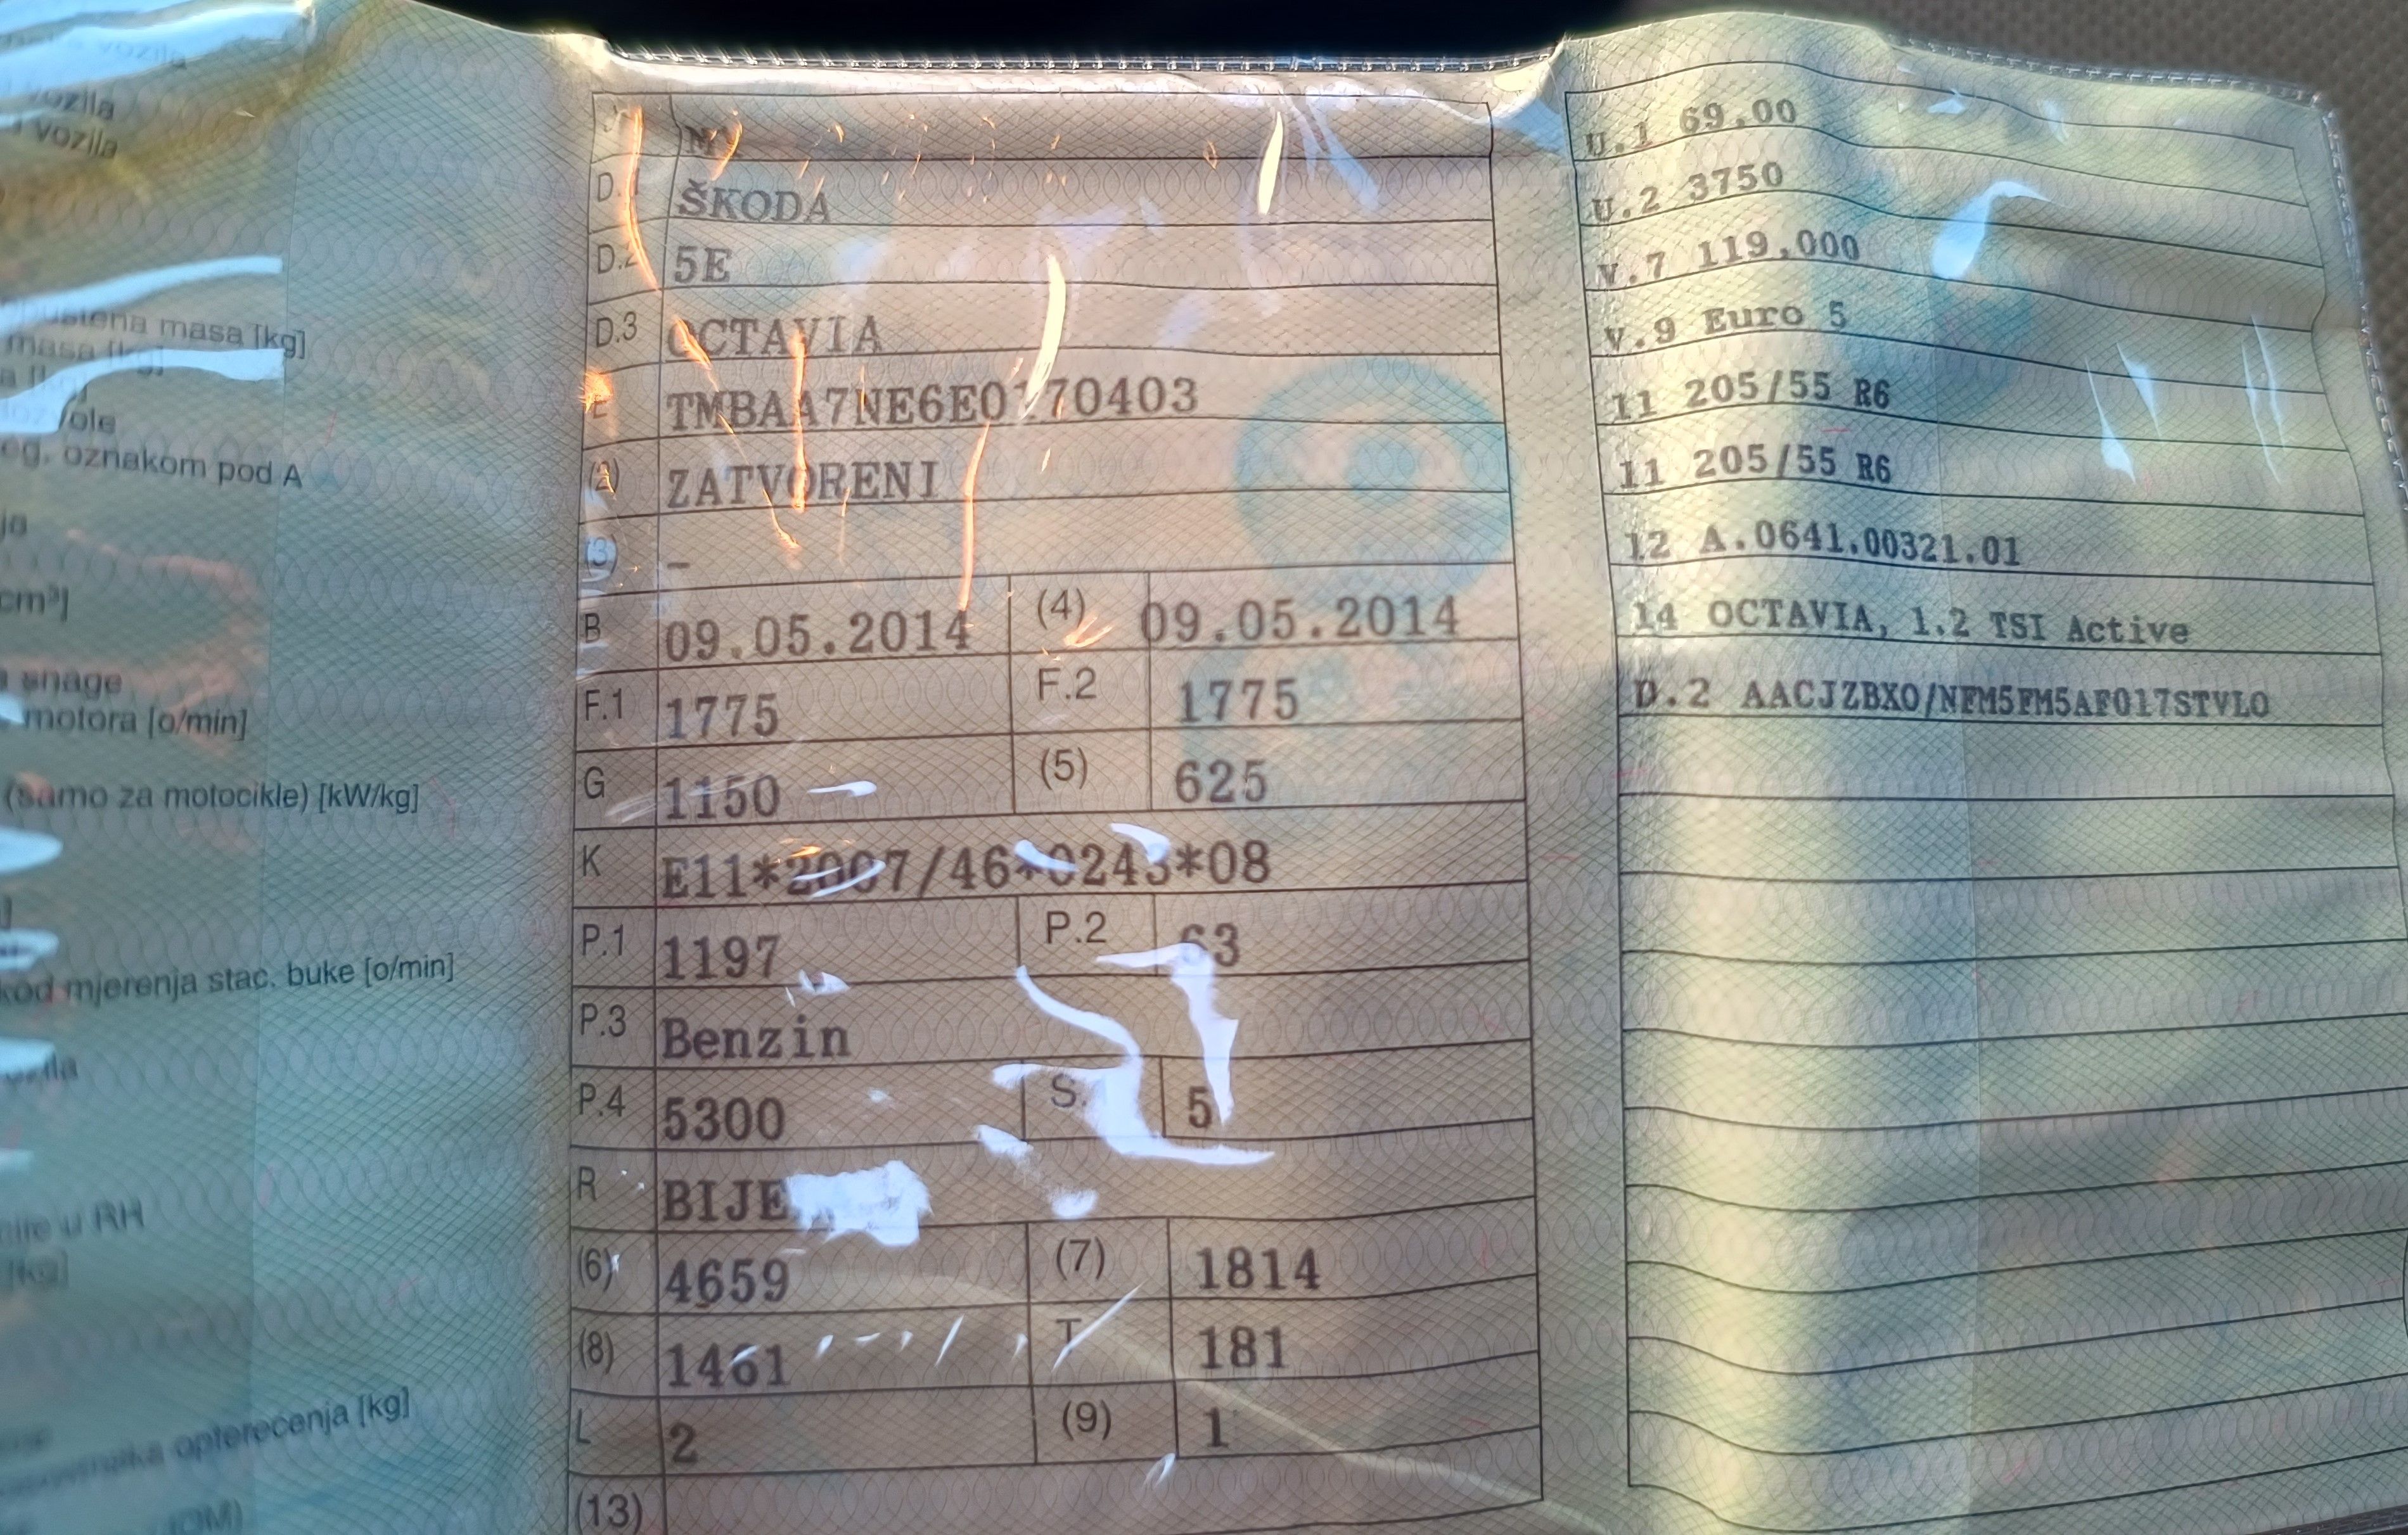 vozila
vozila
vozila
masa [kg]
masa [kg]
eg. oznakom pod A
cm³]
snage
motora [o/min]
(samo za motocikle) [kW/kg]
kod mjerenja stac. buke [o/min]
u RH
[kg]
opterećenja [kg]
D.1 ŠKODA
D.2 5E
D.3 OCTAVIA
E TMBAA7NE6E0170403
(2) ZATVORENI
(3) -
B 09.05.2014 (4) 09.05.2014
F.1 1775 F.2 1775
G 1150 (5) 625
K E11*2007/46*0243*08
P.1 1197 P.2 63
P.3 Benzin
P.4 5300 S. 5
R
(6) 4659 (7) 1814
(8) 1461 T 181
L 2 (9) 1
(13)
U.1 69,00
U.2 3750
V.7 119,000
V.9 Euro 5
11 205/55 R6
11 205/55 R6
12 A.0641.00321.01
14 OCTAVIA, 1.2 TSI Active
D.2 AACJZBX0/NFM5FM5AF017STVL0